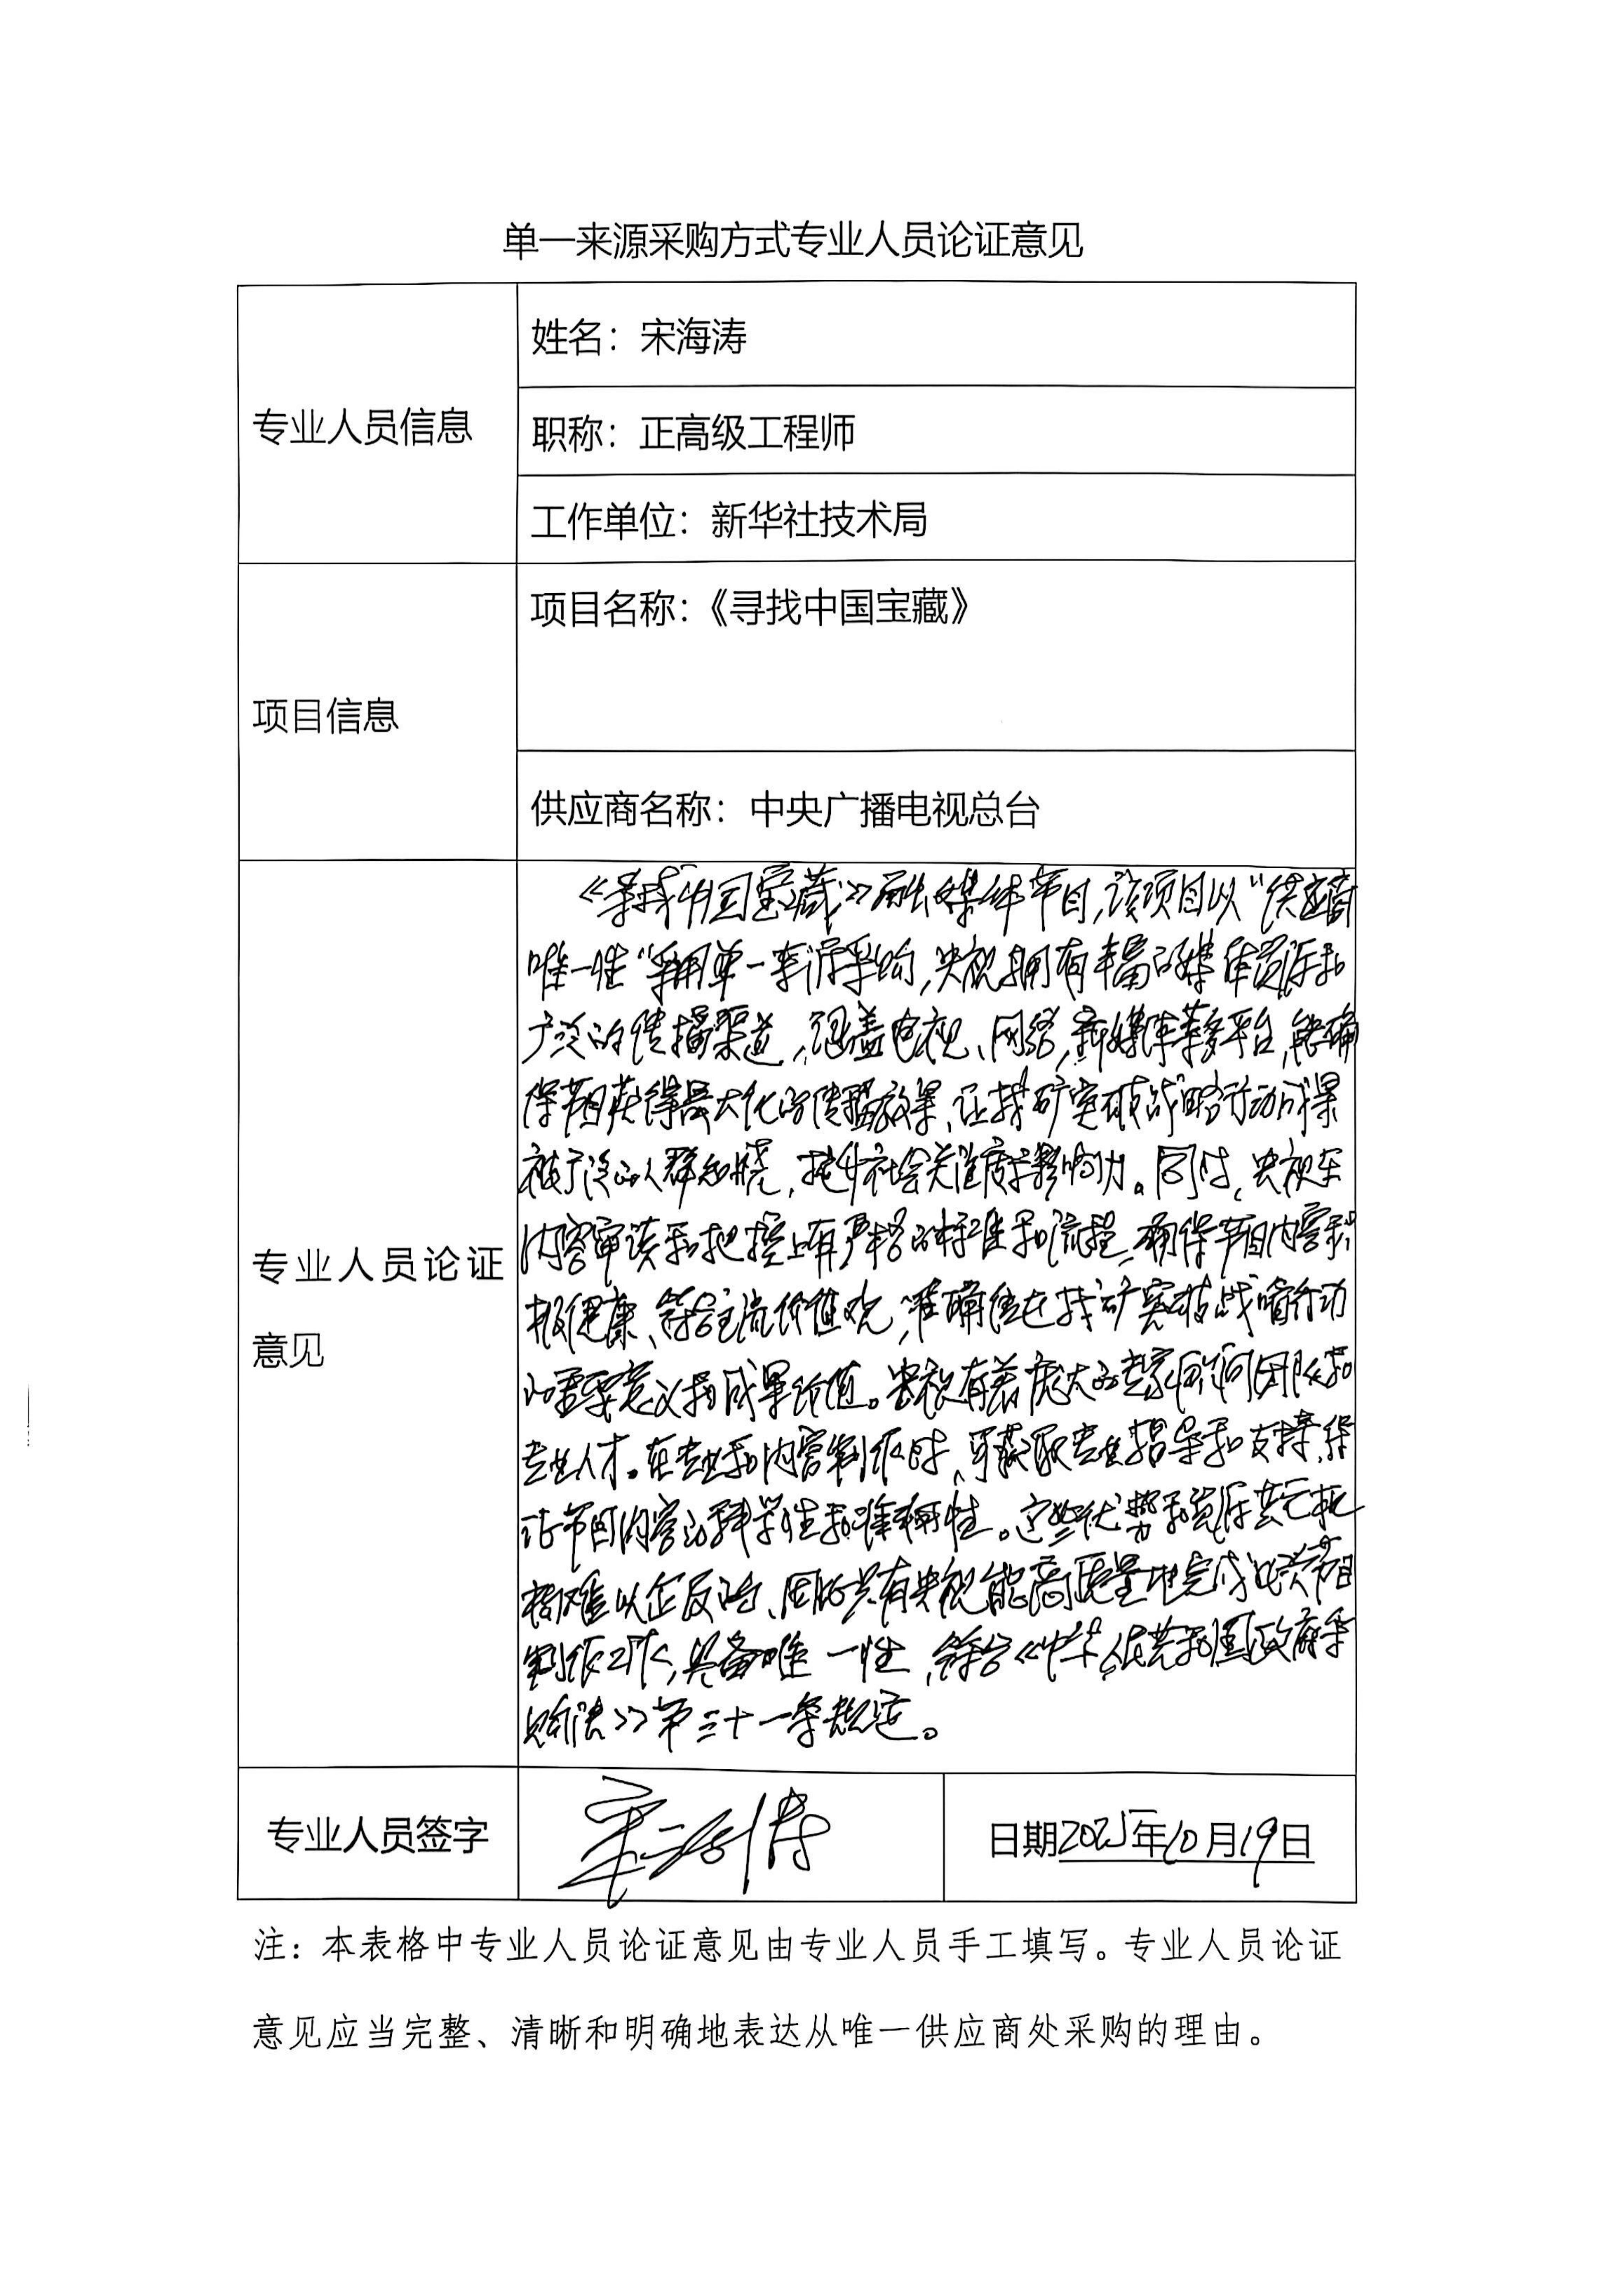 单一来源采购方式专业人员论证意见
专业人员信息
姓名：宋海涛
职称：正高级工程师
工作单位：新华社技术局
项目信息
项目名称：《寻找中国宝藏》
供应商名称：中央广播电视总台
专业人员论证
意见
《寻找中国宝藏》融媒体节目，该项目以“供应商
唯一性”采用单一来源采购，央视拥有丰富的媒体资源和
广泛的传播渠道，涵盖电视、网络，新媒体等多平台，能确
保节目获得最大化的传播效果，让找矿突破战略行动成果
被广泛的人群知晓，提升社会关注度与影响力。同时，央视在
内容审读和把控上有严格的标准和流程，确保节目内容积
极健康、符合主流价值观，准确传达找矿突破战略行动
的重要意义和成果价值。央视有着庞大的专家顾问团队和
专业人才。在专业和内容制作时，可获取专业指导和支持，保
证节目内容的科学性和准确性。这些优势和资源其它机
构难以企及的，因此只有央视能高质量地完成此类节目
制作工作，具备唯一性，符合《中华人民共和国政府采
购法》第三十一条规定。
专业人员签字
宋海涛
日期2025年10月19日
注：本表格中专业人员论证意见由专业人员手工填写。专业人员论证
意见应当完整、清晰和明确地表达从唯一供应商处采购的理由。